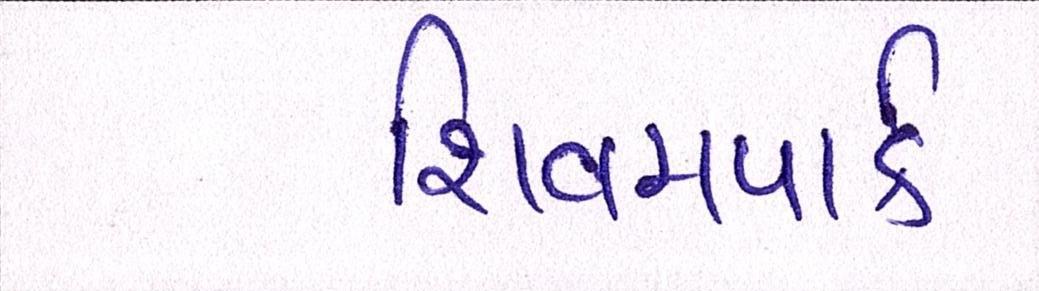 શિવમપાર્ક